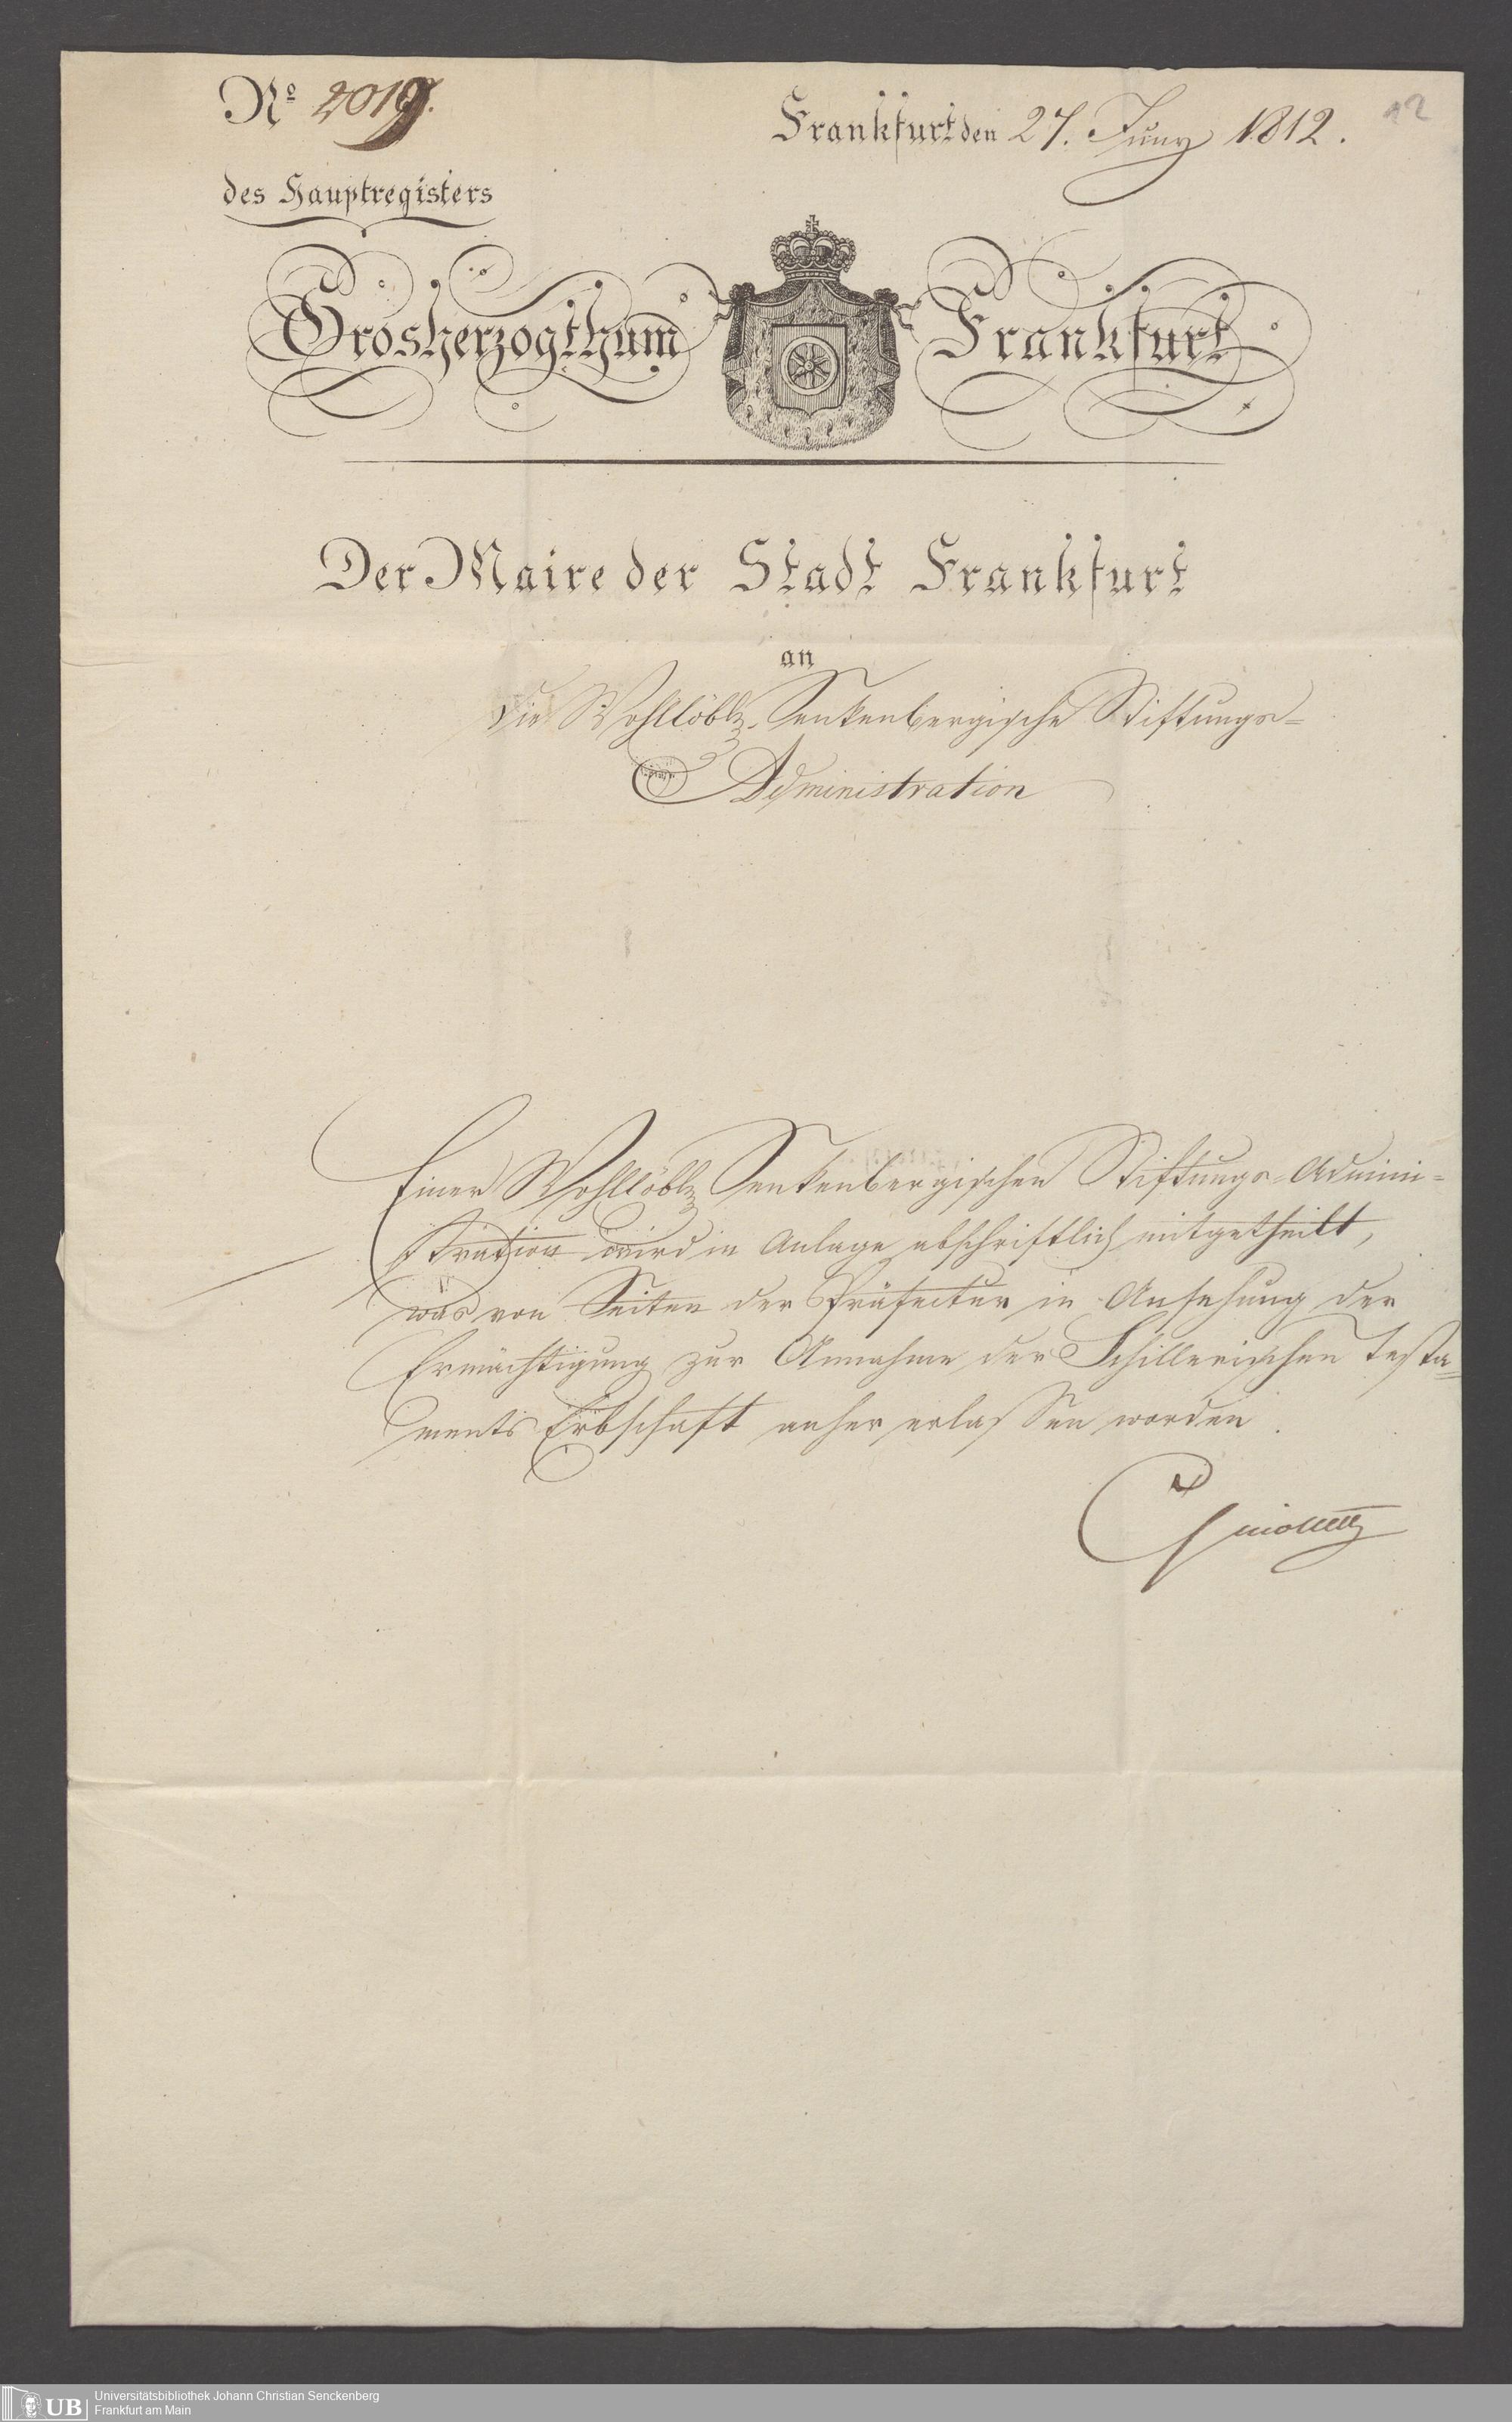 No 2019.
Frankfurt den 27. Juny 1812.
12
des Hauptregisters
Grosherzogthum Frankfurt
Der Maire der Stadt Frankfurt
an
die Wohllöbl. Senkenbergische Stiftungs-
Administration
Einer Wohllöbl. Senkenbergischen Stiftungs-Admini-
stration wird in Anlage abschriftlich mitgetheilt,
was von Seiten der Präfectur in Ansehung der
Ermächtigung zur Annahme der Schillerischen Testa-
ments Erbschaft anher erlassen worden.
UB
Universitätsbibliothek Johann Christian Senckenberg
Frankfurt am Main